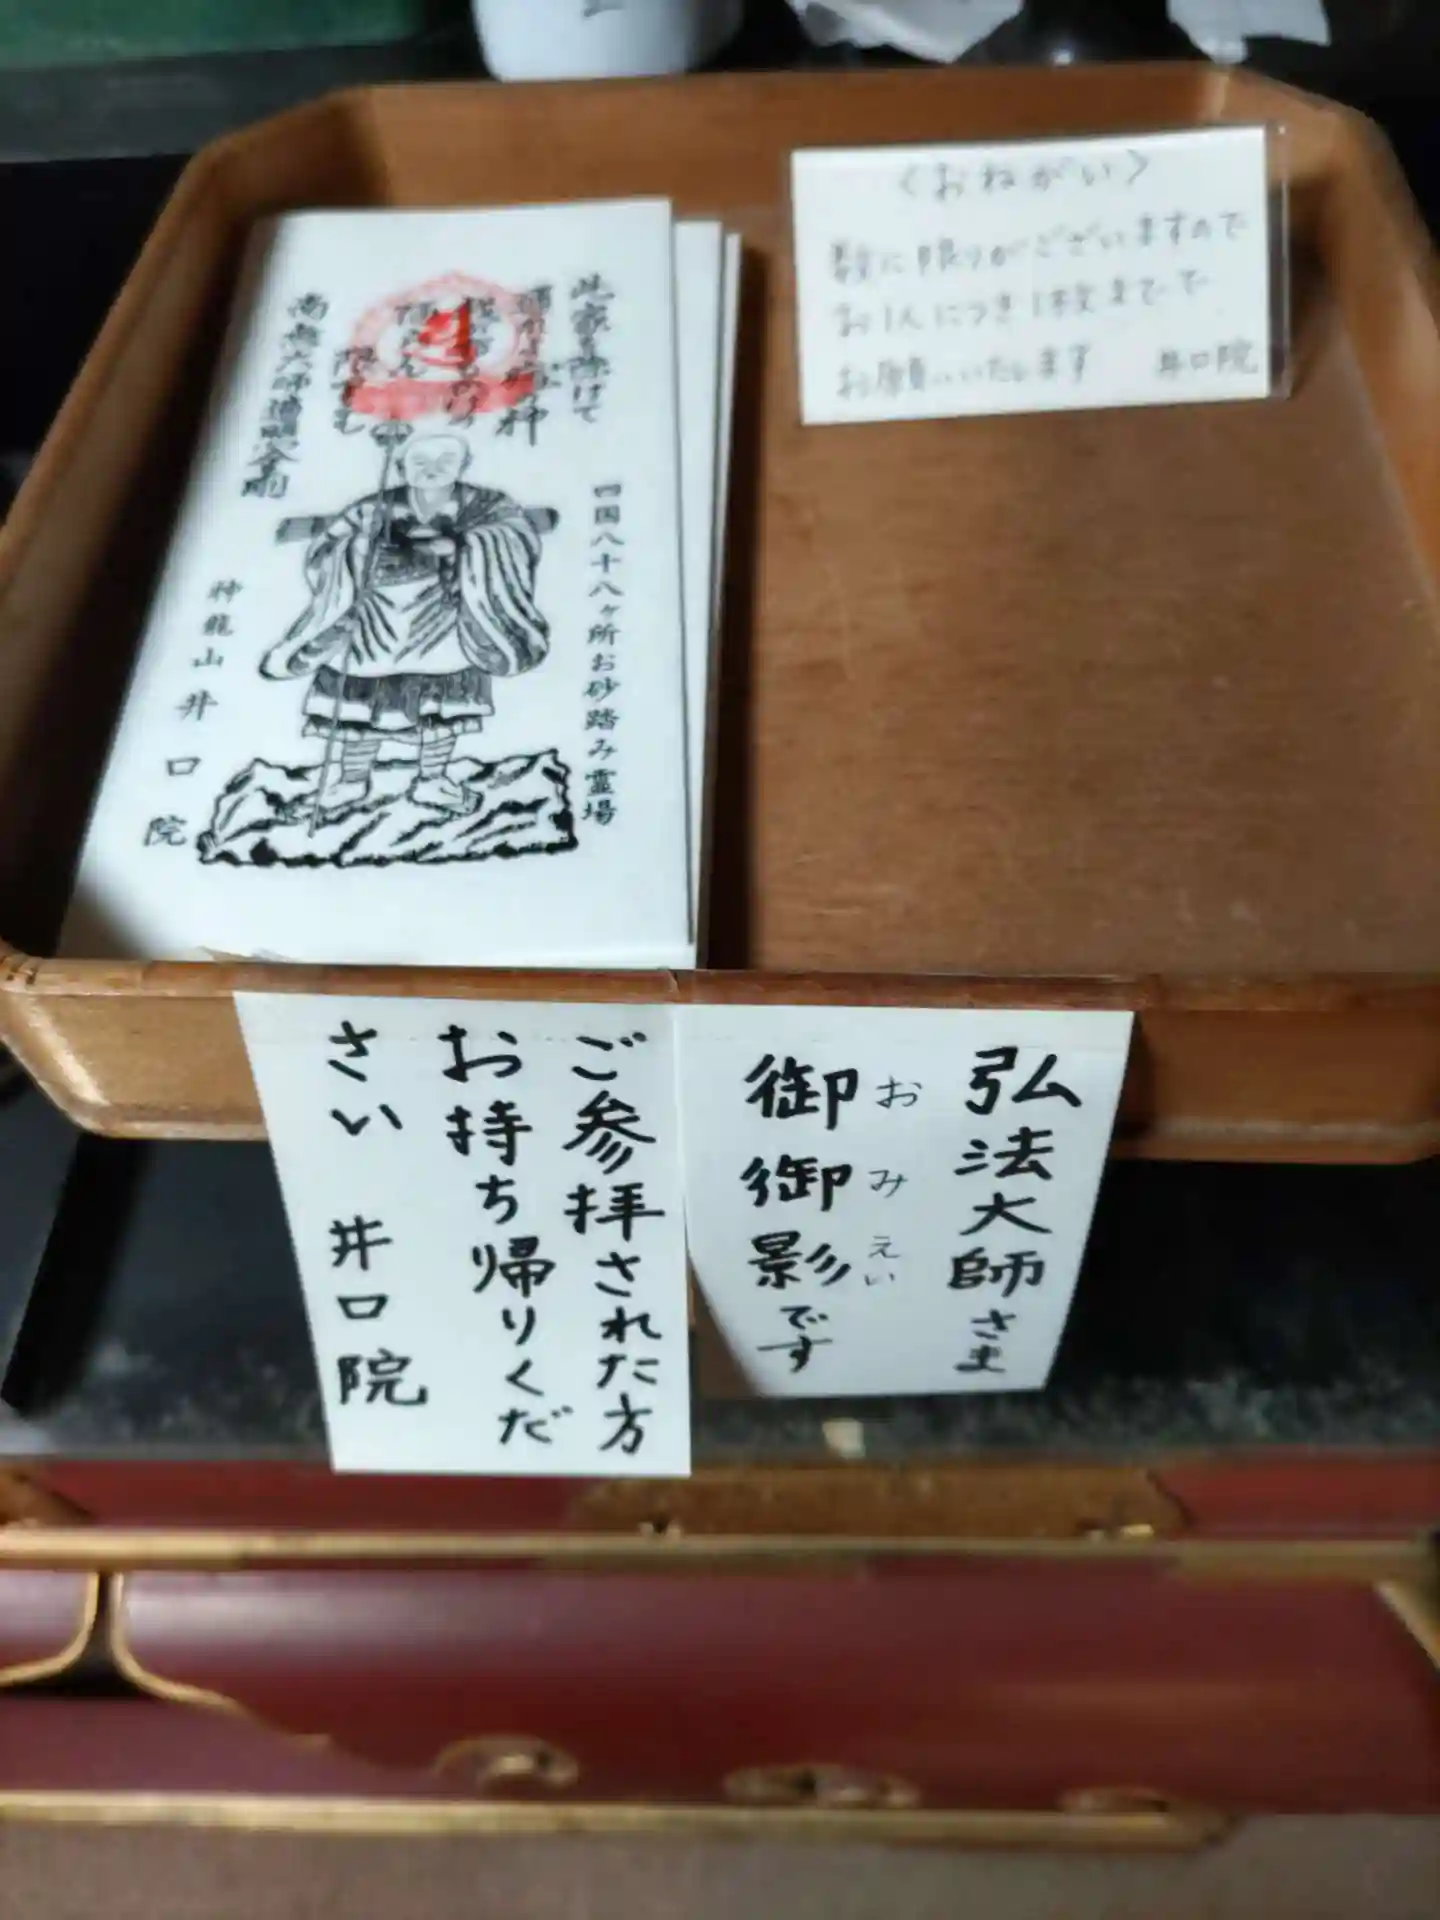 〈おねがい〉
数に限りがございますので
お1人につき1枚までで
お願いいたします 井口院
四国八十八ヶ所お砂踏み霊場
南無大師遍照金剛
神龍山 井口院
弘法大師さま
御御影です
おみえい
ご参拝された方
お持ち帰りくだ
さい 井口院